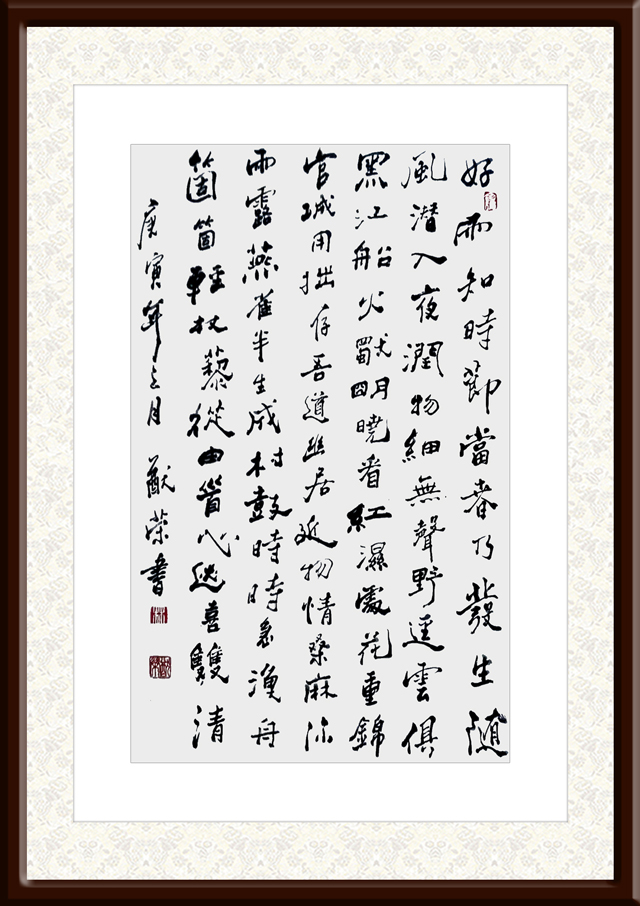 好雨知時節當春乃發生隨
風潜入夜潤物細無聲野逕雲俱
黑江船火獨明曉看紅濕處花重錦
官城用拙存吾道幽居近物情桑麻深
雨露燕雀半生成村鼓時時急漁舟
箇箇輕杖藜從白首心迹喜雙清
庚寅年三月猷榮書